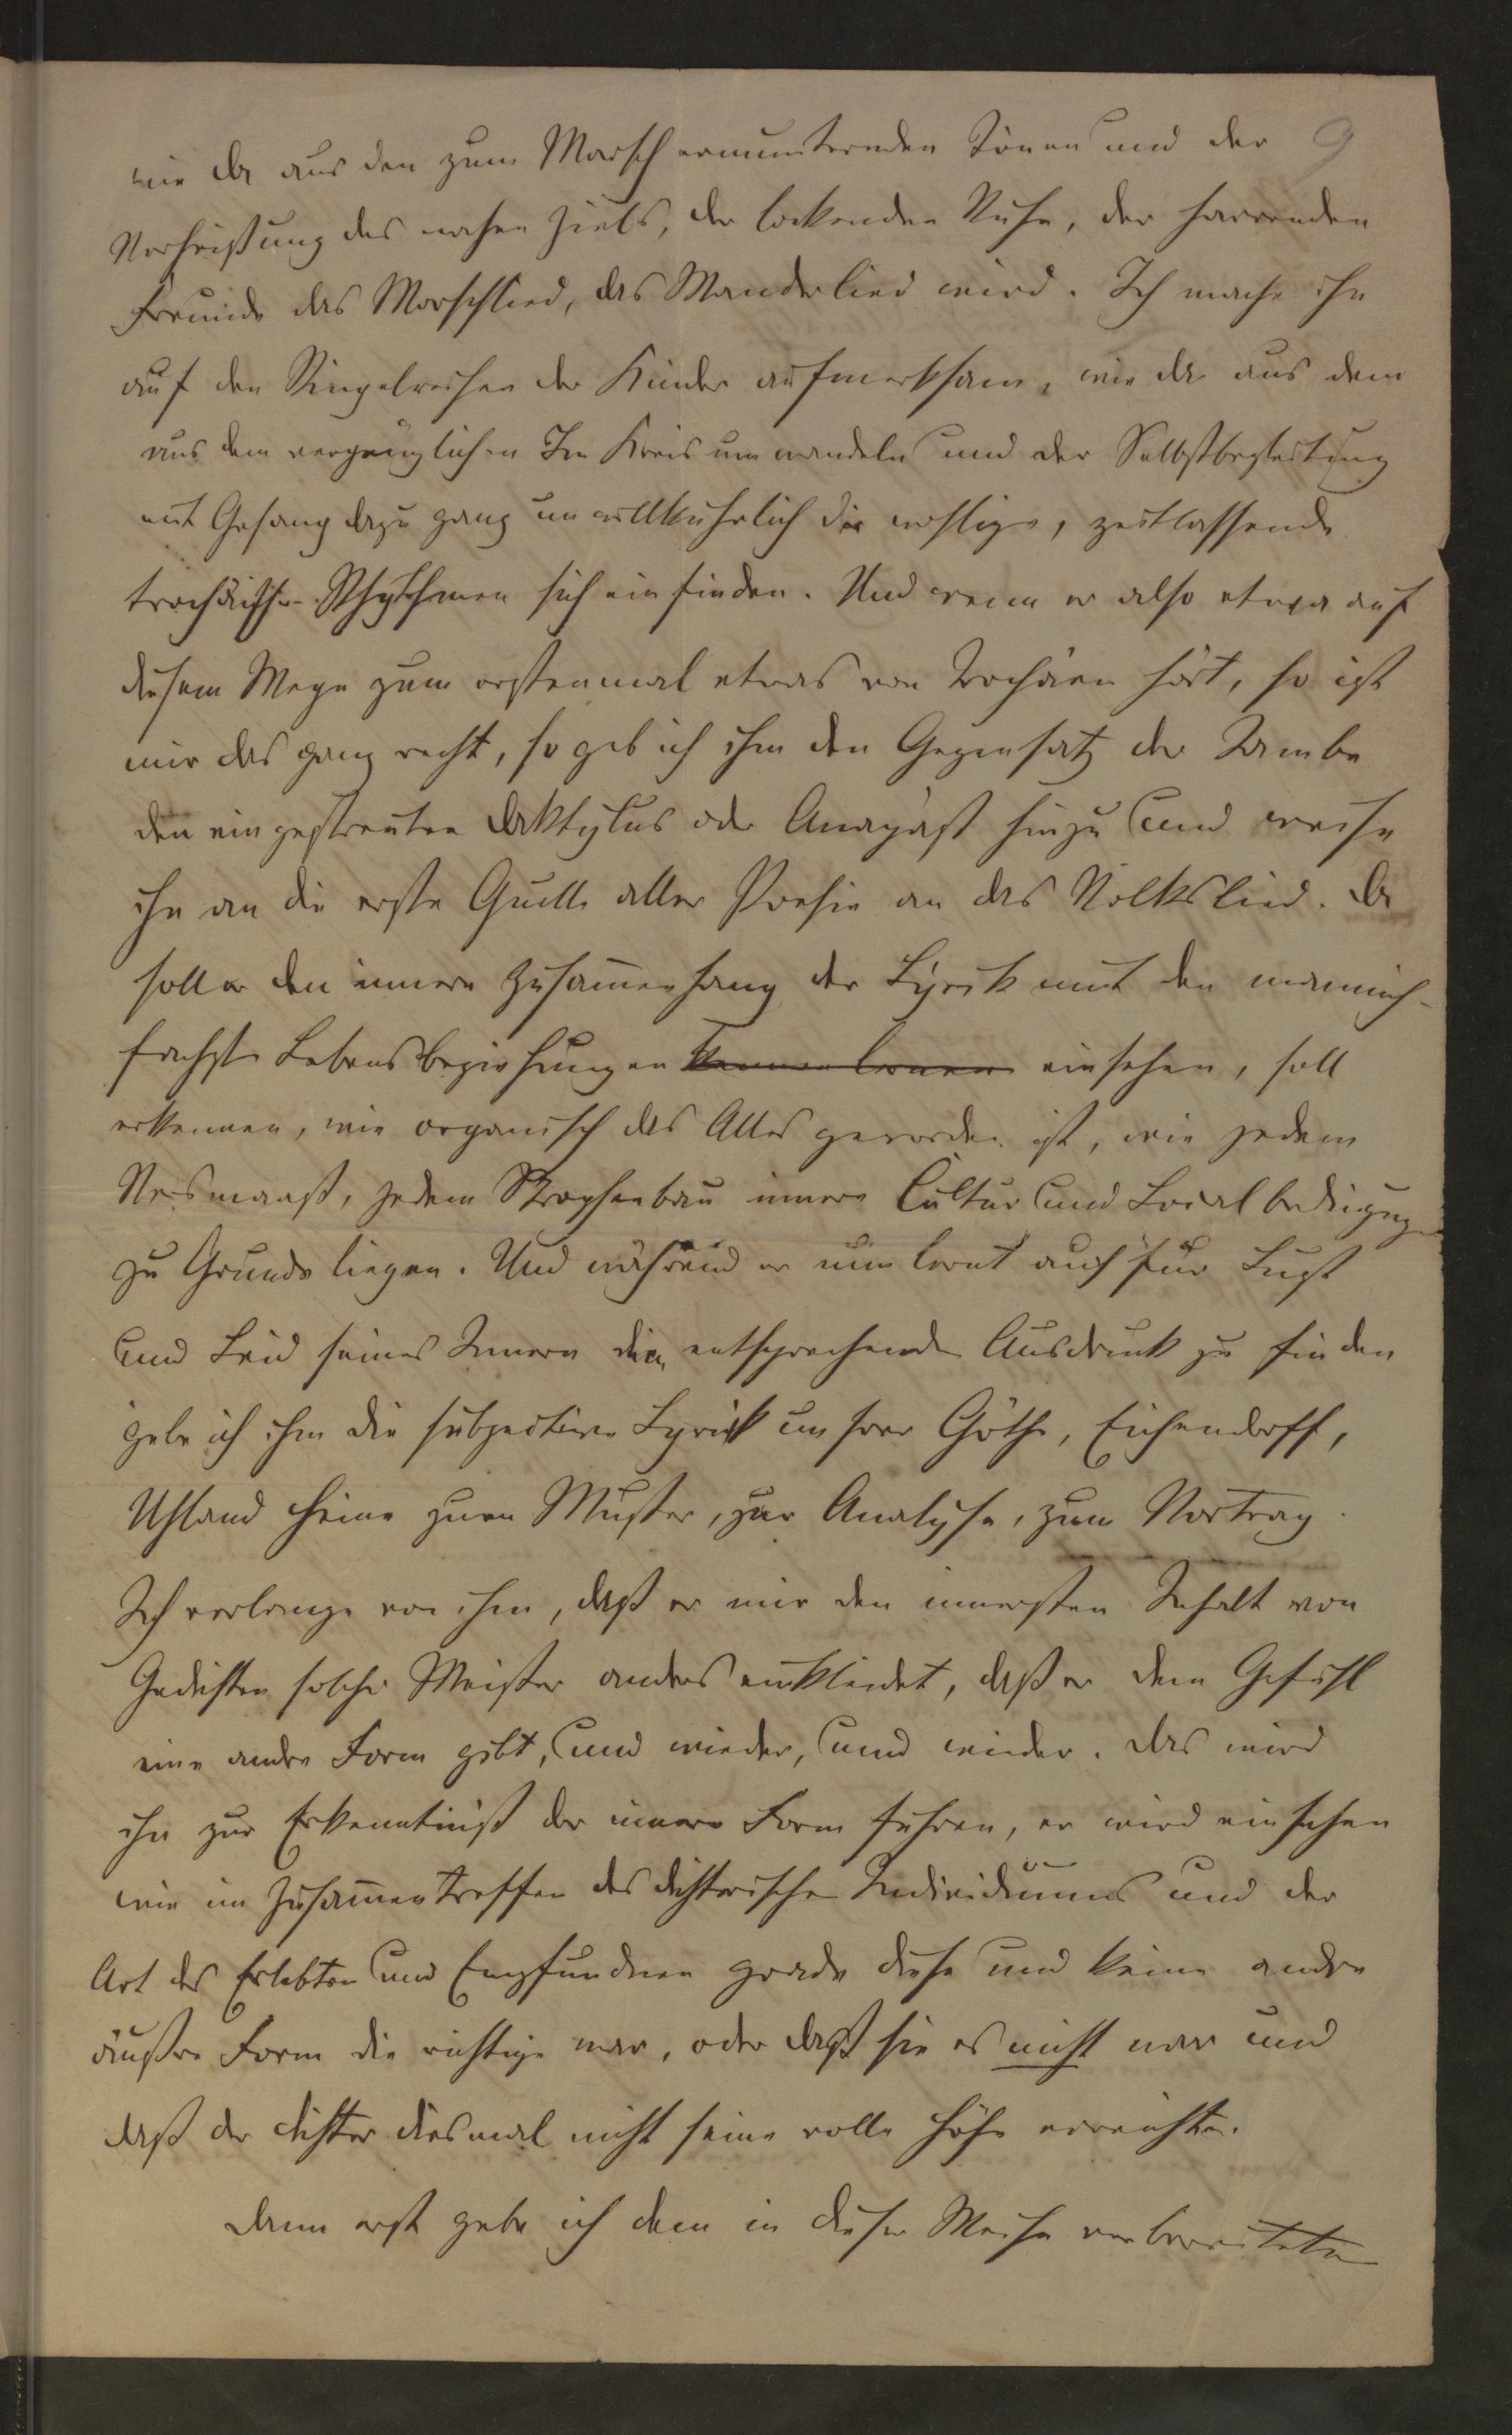 wie da aus den zum Marsch ermunternden Tönen und der 9
Verheißung des nahen Ziels, der lockenden Ruhe, der harrenden
Freunde das Marschlied, das Wanderlied wird. Ich mache ihn
auf den Ringelreihen der Kinder aufmerksam, wie da aus dem
aus dem vergnüglichen Im Kreis umwandeln und der Selbstbegleitung
mit Gesang dazu ganz unwillkuhrlich die, zeitlassende
trochäische Rhythmen sich einfinden. Und wenn er also etwa auf
diesem Wege zum erstenmal etwas von Trochäen hört, so ist
mir das ganz recht, so geb ich ihm den Gegensatz der Jambe
den eingestreuten Daktylus oder Anapäst hinzu und weise
ihn an die erste Quelle aller Poesie an das Volkslied. Da
soll er den innern Zusam̄enhang der Lyrik mit den mannich-
fachsten Lebensbeziehungen kennen lernen einsehen, soll
erkennen, wie organisch das Alles geworden ist, wie jedem
Versmaaß, jedem Strophenbau innere Cultur und Localbedingungen
zu Grunde liegen. Und während er nun lernt auch für Lust
und Leid seines Innern den entsprechenden Ausdruck zu finden
gebe ich ihm die subjective Lyrik unsrer Göthe, Eichendorff,
Uhland Heine zum Muster, zur Analyse, zum Vortrag.
Ich verlange von ihm, daß er mir den innersten Inhalt von
Gedichten solcher Meister anders einkleidet, daß er dem Gefühl
eine andre Form gibt, und wieder, und wieder. Das wird
ihn zur Erkenntniß der innern Form führen, er wird einsehen
wie im Zusam̄entreffen des dichterischen Individuums und der
Art des Erlebten und Empfundnen grade diese und keine andre
äußre Form die richtige war, oder daß sie es nicht war und
daß der Dichter diesmal nicht seine volle Höhe erreichte.
Dann erst gebe ich dem in dieser Weise vorbereiteten